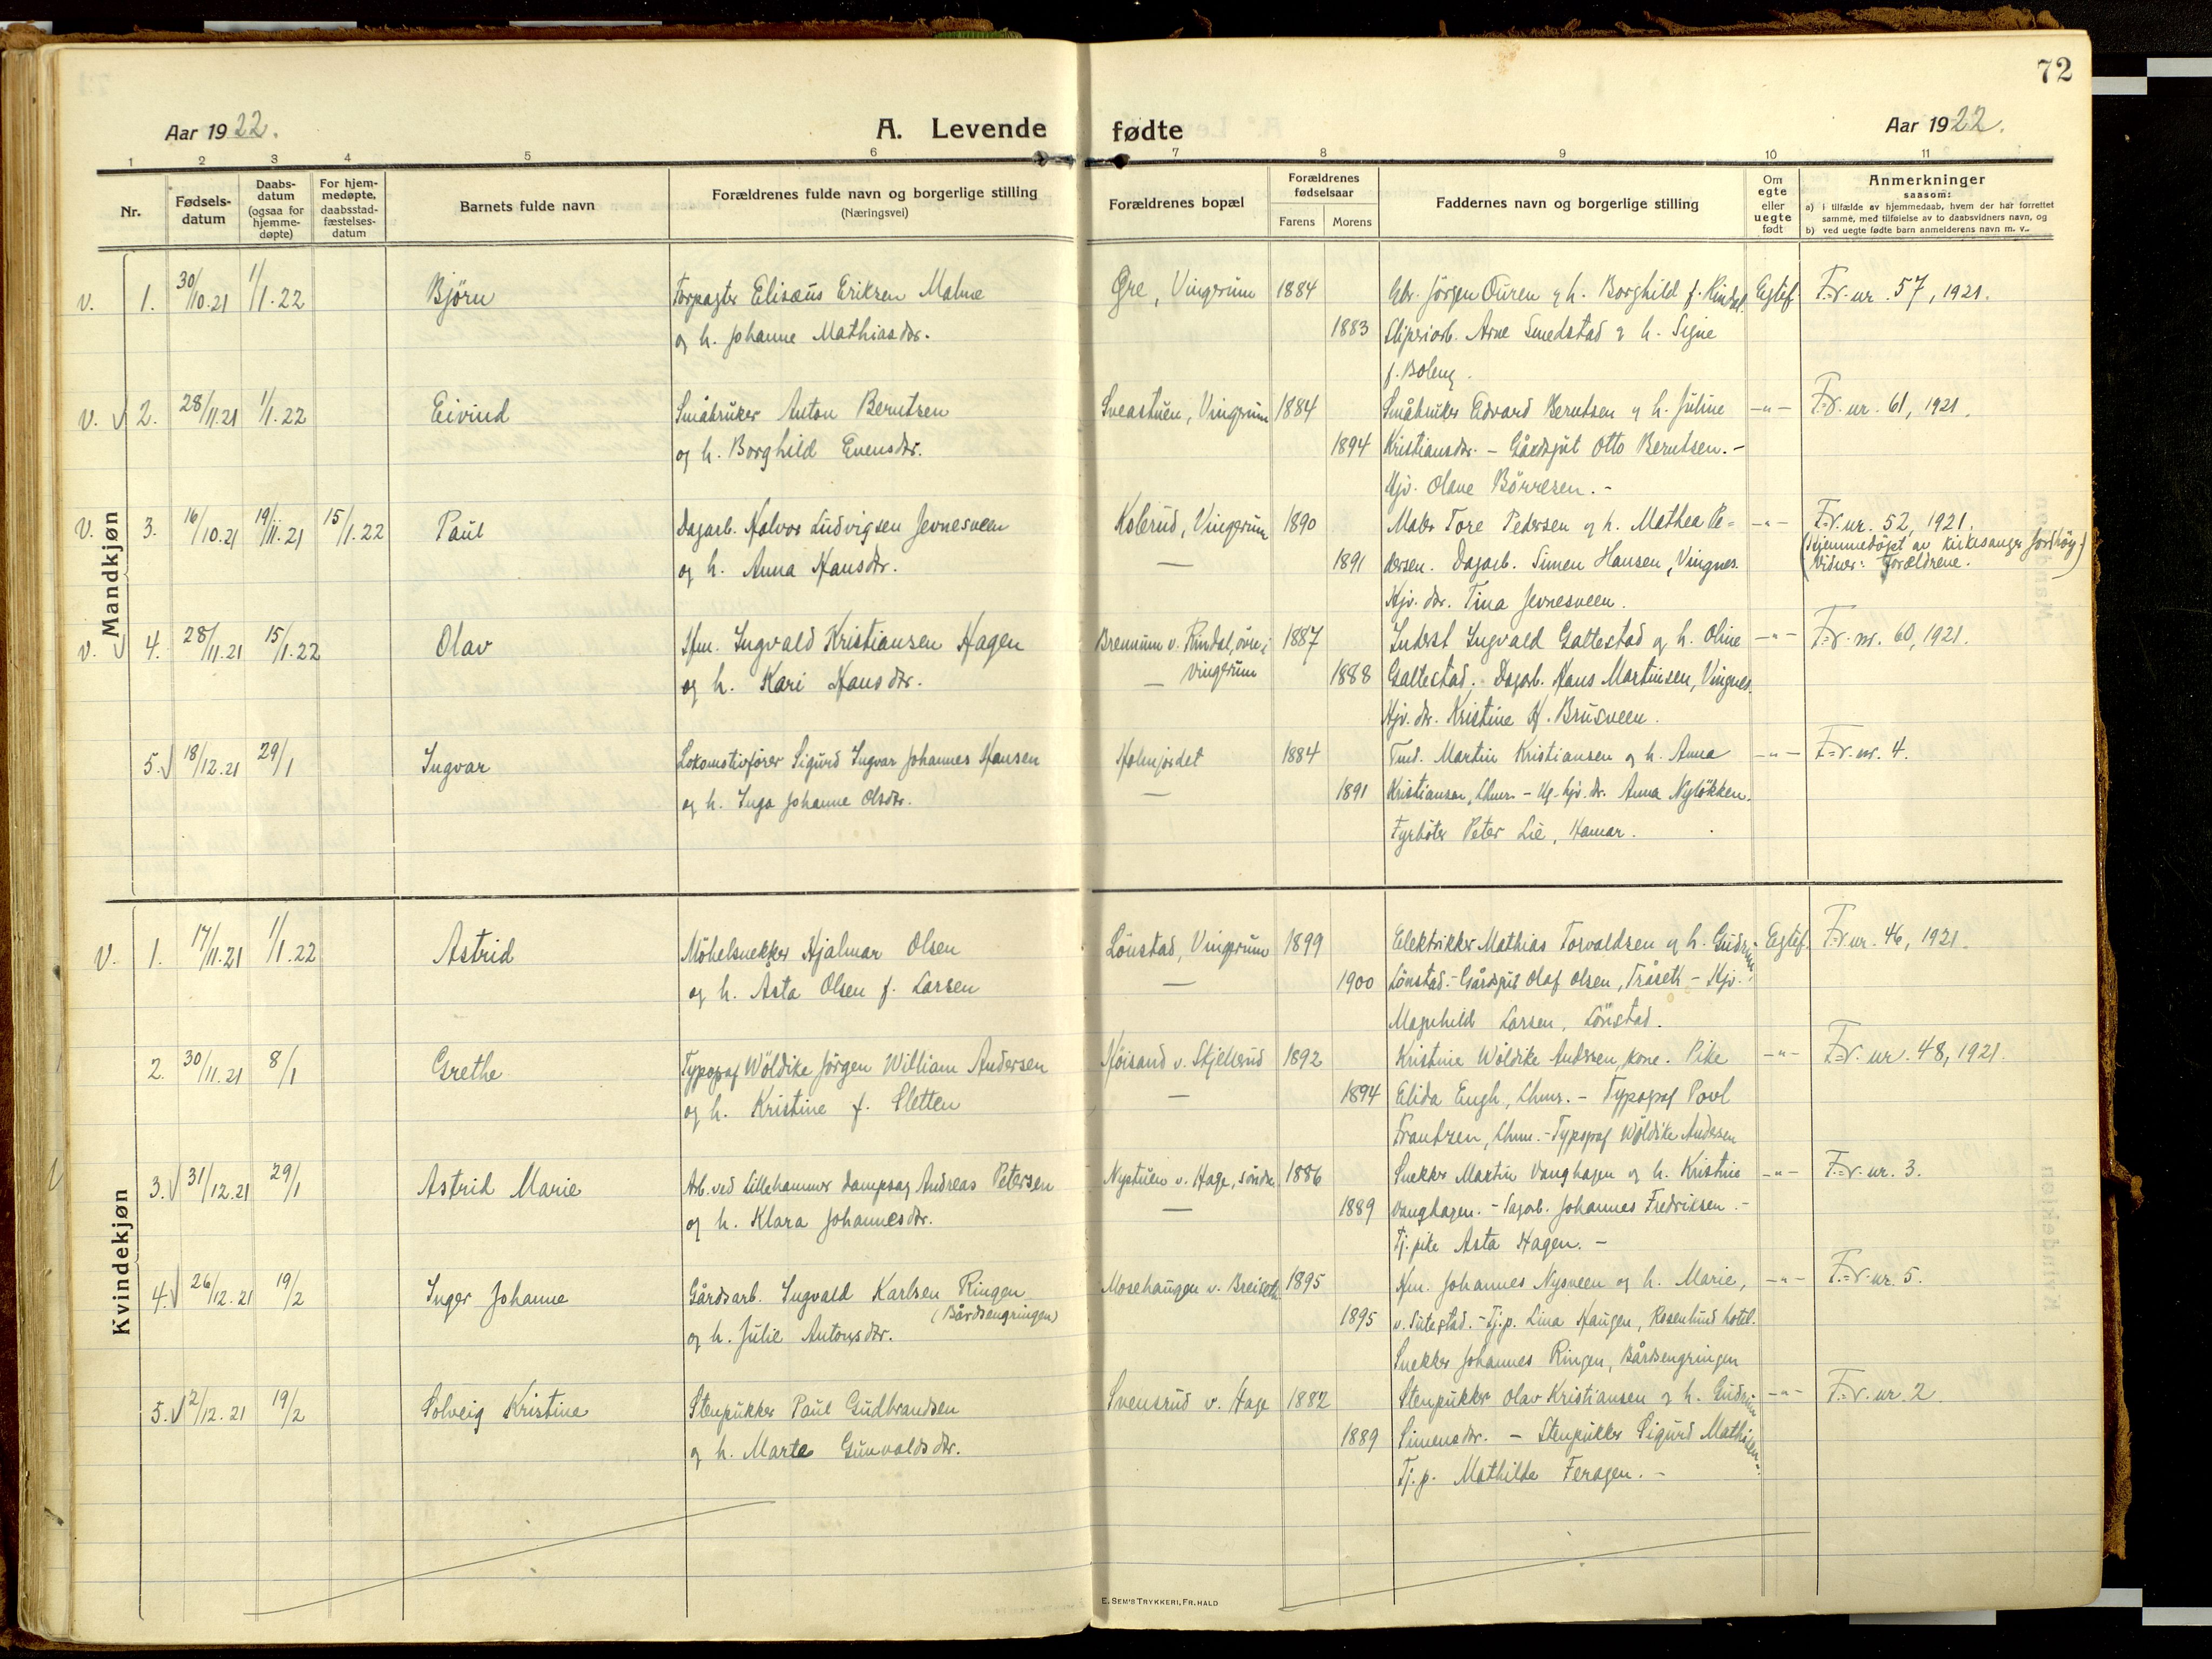 72
Aar 1922.
A. Levende fødte
Aar 1922.
1 2 3 4 5 6 7 8 9 10 11
Nr.
Fødsels-
datum
Daabs-
datum
(ogsaa for
hjemme-
døpte)
For hjem-
medøpte,
daabsstad-
fæstelses-
datum
Barnets fulde navn
Forældrenes fulde navn og borgerlige stilling
(Næringsvei)
Forældrenes bopæl
Forældrenes
fødselsaar
Farens Morens
Faddernes navn og borgerlige stilling
Om
egte
eller
uegte
født
Anmerkninger
saasom:
a) i tilfælde av hjemmedaab, hvem der har forrettet
samme, med tilføielse av to daabsvidners navn, og
b) ved uegte fødte barn anmelderens navn m. v.
Mandkjøn
V. 1. 30/10.21 1/1.22 Bjørn Forpagter Elisæus Eriksen Malme Øre, Vingrum 1884 Gbr. Jørgen Ouren og h. Borghild f. Rindal. Egtef. F.r. nr. 57, 1921.
og h. Johanne Mathiasdtr. 1883 Sliperiarb. Arne Smedstad og h. Signe
f. Boleng.
V. √ 2. 28/11.21 1/1.22 Eivind Småbruker Anton Berntsen Sveastuen, Vingrum 1884 Småbruker Edvard Berntsen og h. Juline -"- F.r. nr. 61, 1921.
og h. Borghild Evensdtr. 1894 Kristiansdtr. - Gårdsgut Otto Berntsen. -
Hjv. Olave Börresen. -
V. 3. 16/10.21 19/11.21 15/1.22 Paul Dagarb. Halvor Ludvigsen Jevnesveen Kolerud, Vingrum 1890 Maler Tore Pedersen og h. Mathea Pe= -"- F.r. nr. 52, 1921.
og h. Anna Hansdtr. — 1891 dersen. Dagarb. Simen Hansen, Vingnes. (Hjemmedöpt av kirkesanger Jordhöy.)
Hjv. dtr. Tina Jevnesveen. Vidner: Forældrene.
V. √ 4. 28/11.21 15/1.22 Olav Hm. Ingvald Kristiansen Hagen Brennum v. Rindal, övre i 1887 Inderst Ingvald Galtestad og h. Oline -"- F.r. nr. 60, 1921.
og h. Kari Hansdtr. — Vingrum 1888 Galtestad. Dagarb. Hans Martinsen, Vingnes.
Hjv. dtr. Kristine H. Brusveen.
5. √ 18/12.21 29/1 Ingvar Lokomotivfører Sigurd Ingvar Johannes Hansen Holmjordet 1884 Tmd. Martin Kristiansen og h. Anna -"- F.r. nr. 4.
og h. Inga Johanne Olsdtr. — 1891 Kristiansen, Lhmr. - Ug. hjv. dtr. Anna Nylökken.
Fyrböter Peter Lie, Hamar.
Kvindekjøn
V. 1. 17/11.21 1/1.22 Astrid Möbelsnekker Hjalmar Olsen Lönstad, Vingrum 1899 Elektrikker Mathias Torvaldsen og h. Gudrun Egtef. F.r. nr. 46, 1921.
og h. Asta Olsen f. Larsen — 1900 Lönstad. - Gårdsgut Olaf Olsen, Tråseth - Hjv.
Magnhild Larsen, Lönstad.
2. 30/11.21 8/1 Grethe Typograf Wöldike Jörgen William Andersen Höisand v. Skjellerud 1892 Kristine Wöldike Andersen, kone. Pike -"- F.r. nr. 48, 1921.
og h. Kristine f. Sletten — 1894 Elida Engh, Lhmr. - Typograf Povl
Frantzen, Lhmr. - Typograf Wöldike Andersen
3. √ 31/12.21 29/1 Astrid Marie Arb. ved Lillehammer dampsag Andreas Petersen Nystuen v. Hage, söndre 1886 Snekker Martin Vanghagen og h. Kristine -"- F.r. nr. 3.
og h. Klara Johannesdtr. — 1889 Vanghagen. - Sagarb. Johannes Fredriksen. -
Tj. pike Asta Hagen. -
4. √ 26/12.21 19/2 Inger Johanne Gårdsarb. Ingvald Karlsen Ringen Mosehaugen v. Breiseth 1895 Hm. Johannes Nysveen og h. Marie, -"- F.r. nr. 5.
(Bårdsengringen)
og h. Julie Antonsdtr. 1895 v. Sutestad. - Tj.p. Lina Haugen, Rosenlund hotel.
Snekker Johannes Ringen, Bårdsengringen
5. √ 2/12.21 19/2 Solveig Kristine Stenpukker Paul Gudbrandsen Svensrud v. Hage 1882 Stenpukker Olav Kristiansen og h. Gudrun -"- F.r. nr. 2
og h. Marte Gunvaldsdtr. 1889 Simensdtr. - Stenpukker Sigurd Mathisen -
Tj. p. Mathilde Feragen. -
E. SEM'S TRYKKERI, FR.HALD